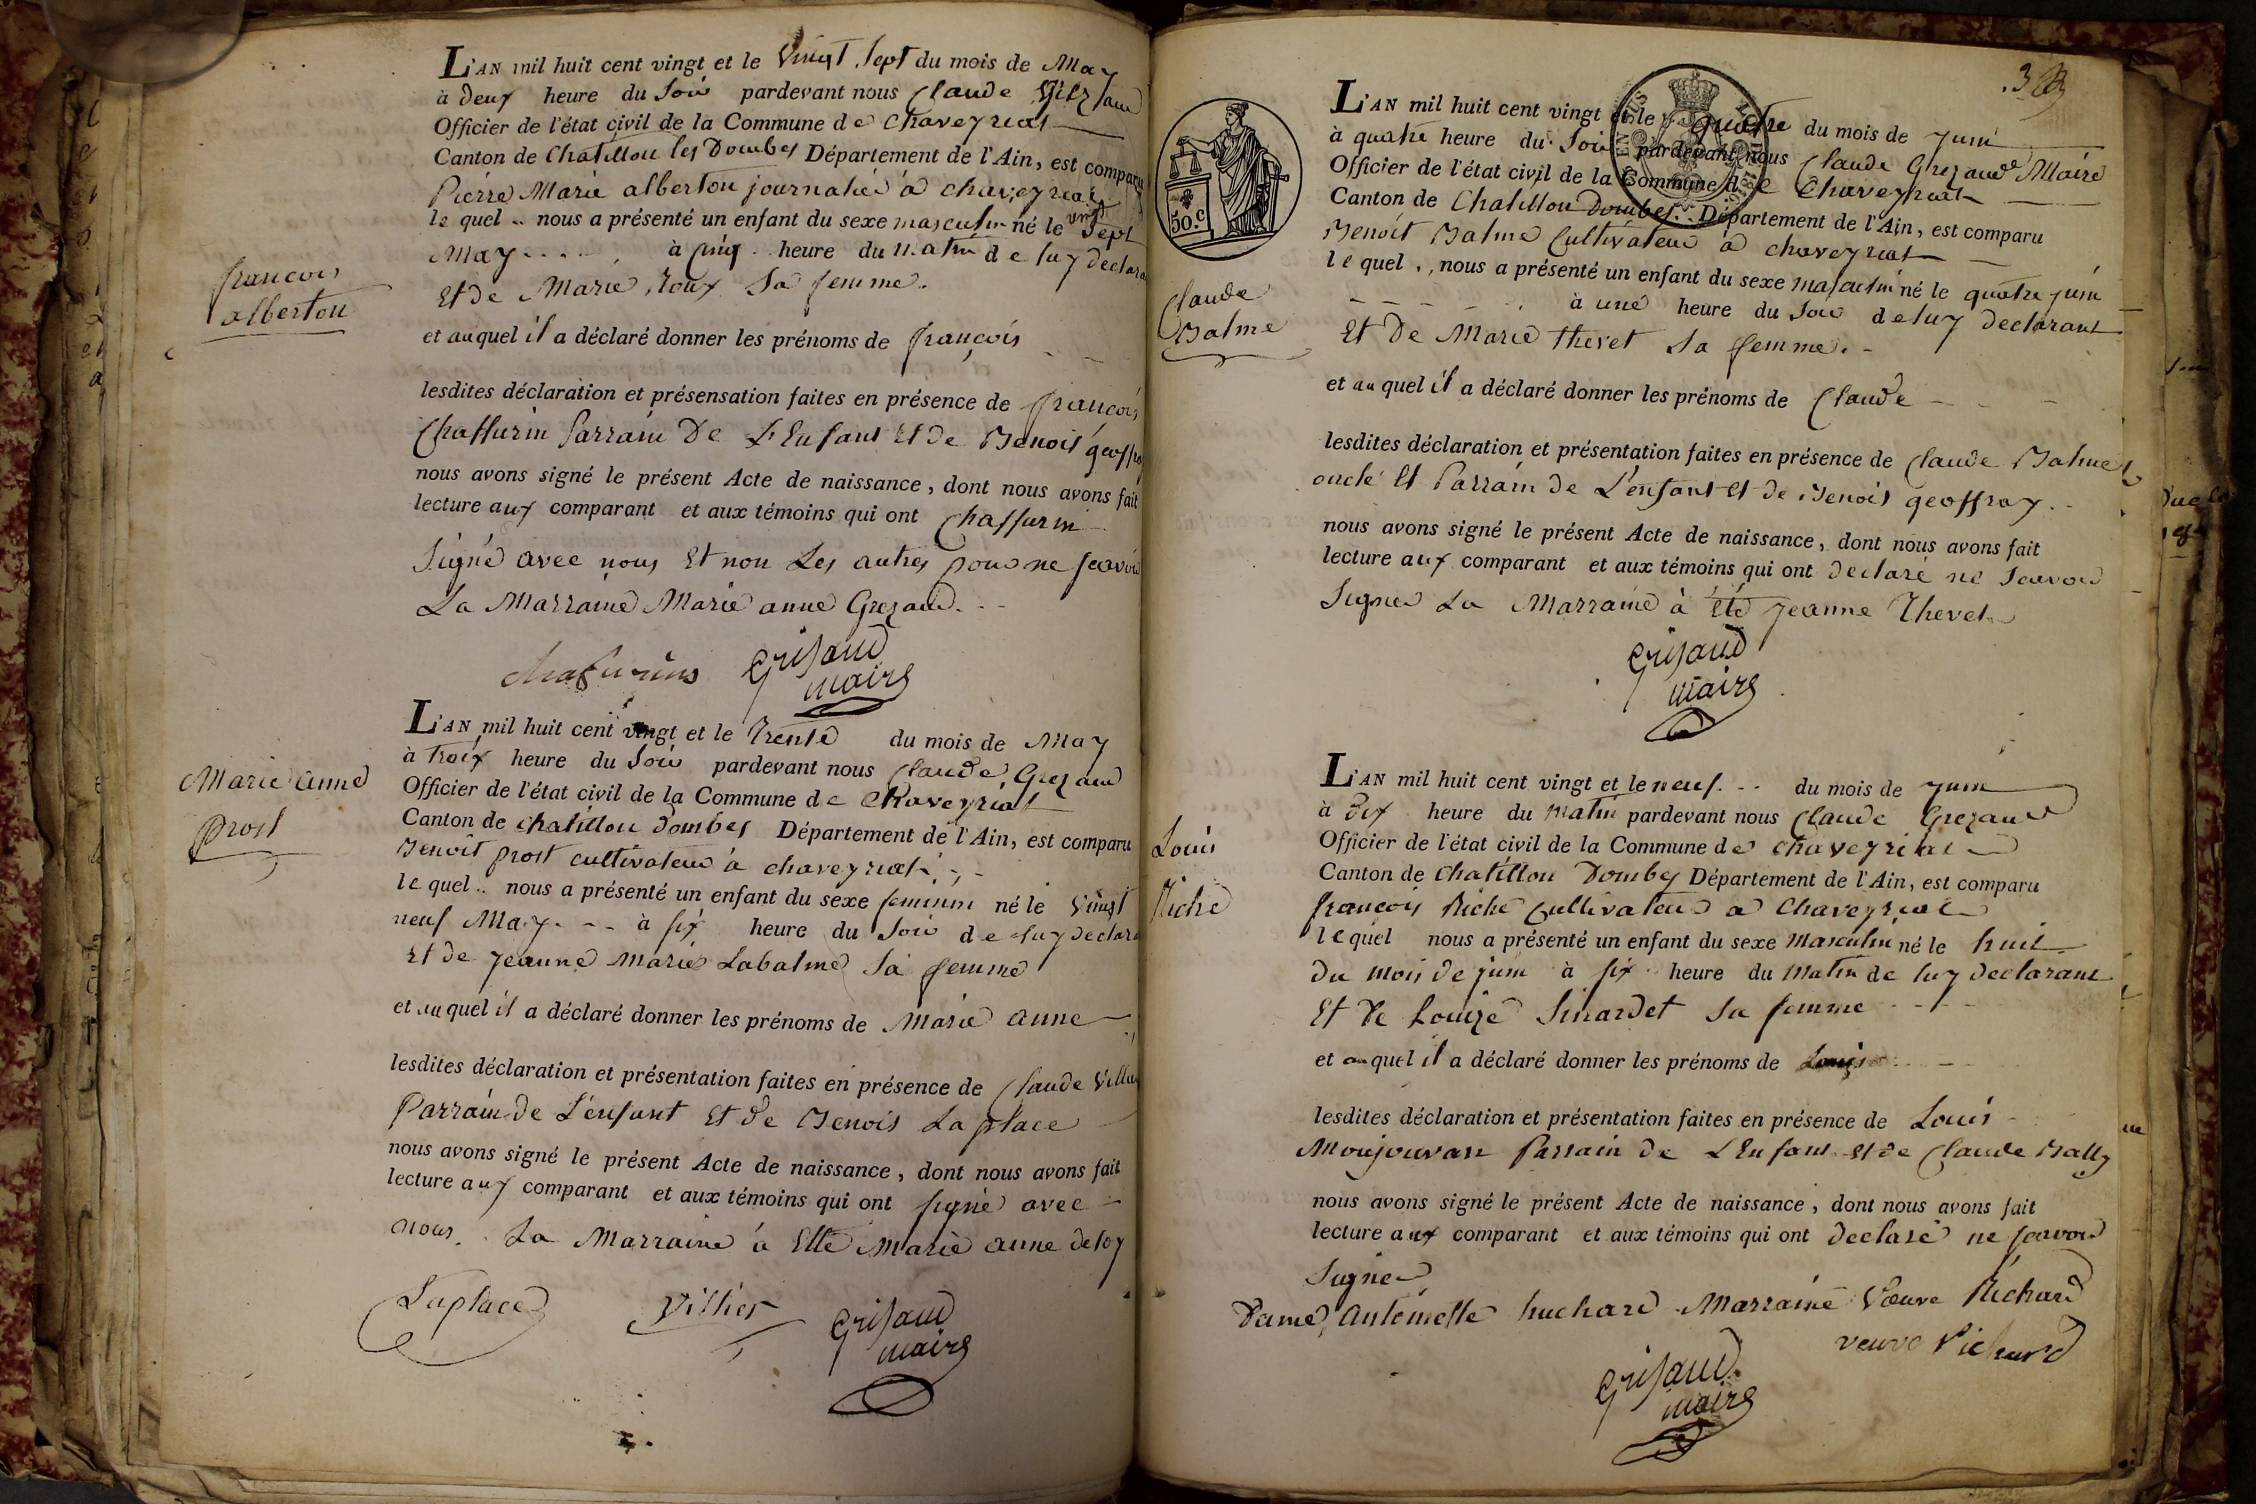 L'AN mil huit cent vingt et le Vingt Sept du mois de May
à deux heure du Soir pardevant nous Claude
Officier de l'état civil de la Commune de Chaveyriat
Canton de Chatillon les Dombes Département de l'Ain, est comparu
Pierre Marie alberton journalier à chaveyriat
le quel .. nous a présenté un enfant du sexe masculin né le vingt Sept
May à Cinq heure du matin de luy declara
Et de Marie roux Sa femme.
et auquel il a déclaré donner les prénoms de françois
lesdites déclaration et présensation faites en présence de françois
Chaffurin Parrain De L'Enfant Et de Benoit geoffra
nous avons signé le présent Acte de naissance, dont nous avons fait
lecture aux comparant et aux témoins qui ont Chaffurin
Signé avec nous Et non Les autres pour ne scavoir
La Marraine Marie anne Grezaud.
francois
alberton
Chafurins Grisaud
maire
L'AN mil huit cent vingt et le Trente du mois de May
à trois heure du Soir pardevant nous Claude Grezaud
Officier de l'état civil de la Commune de Chaveyriat
Canton de chatillon dombes Département de l'Ain, est comparu
Benoit prost cultivateur à chaveyriat
le quel .. nous a présenté un enfant du sexe feminin né le Vingt
neuf May. - - à six heure du Soir de luy declara
Et de jeanne Marie Labalme Sa femme
et auquel il a déclaré donner les prénoms de Marie anne
lesdites déclaration et présentation faites en présence de Claude
Parrain de L'enfant Et de Benois Laplace
nous avons signé le présent Acte de naissance, dont nous avons fait
lecture aux comparant et aux témoins qui ont signé avec
nous. La Marraine à Etté Marie anne deloy
Marie anne
prost
Laplace Villier Grisaud
maire
.3
50.c
L'AN mil huit cent vingt et le quatre du mois de juin
à quatre heure du Soir pardevant nous Claude Grezaud Maire
Officier de l'état civil de la Commune de Chaveyriat
Canton de Chatillon Dombes Département de l'Ain, est comparu
Benoit Balme Cultivateur à chaveyriat
le quel .. nous a présenté un enfant du sexe masculin né le quatre juin
à une heure du Soir de luy declarant
Et De Marie thevet Sa femme.
et auquel il a déclaré donner les prénoms de Claude
lesdites déclaration et présentation faites en présence de Claude Balme
oncle Et Parrain de L'enfant Et de Benois geoffray.
nous avons signé le présent Acte de naissance, dont nous avons fait
lecture aux comparant et aux témoins qui ont declaré ne Scavoir
Signer La Marraine à Eté jeanne Thevet
Claude
Balme
Grisaud
maire
L'AN mil huit cent vingt et le neuf. - - du mois de juin
à Dix heure du matin pardevant nous Claude Grezaud
Officier de l'état civil de la Commune de chaveyriat
Canton de Chatillon Dombes Département de l'Ain, est comparu
françois Riche Cultivateur a Chaveyriat
lequel nous a présenté un enfant du sexe Masculin né le huit
du mois de juin à six heure du Matin de luy declarant
Et De Louize Sinardet Sa femme
et auquel il a déclaré donner les prénoms de Louis
lesdites déclaration et présentation faites en présence de Louis
Monjouvan Parrain de L'Enfant Et de Claude Bally
nous avons signé le présent Acte de naissance, dont nous avons fait
lecture aux comparant et aux témoins qui ont declaré ne scavoir
Signer
Dame Antoinette huchard Marraine Veuve Richard
Louis
Riche
veuve Richard
Grisaud
maire